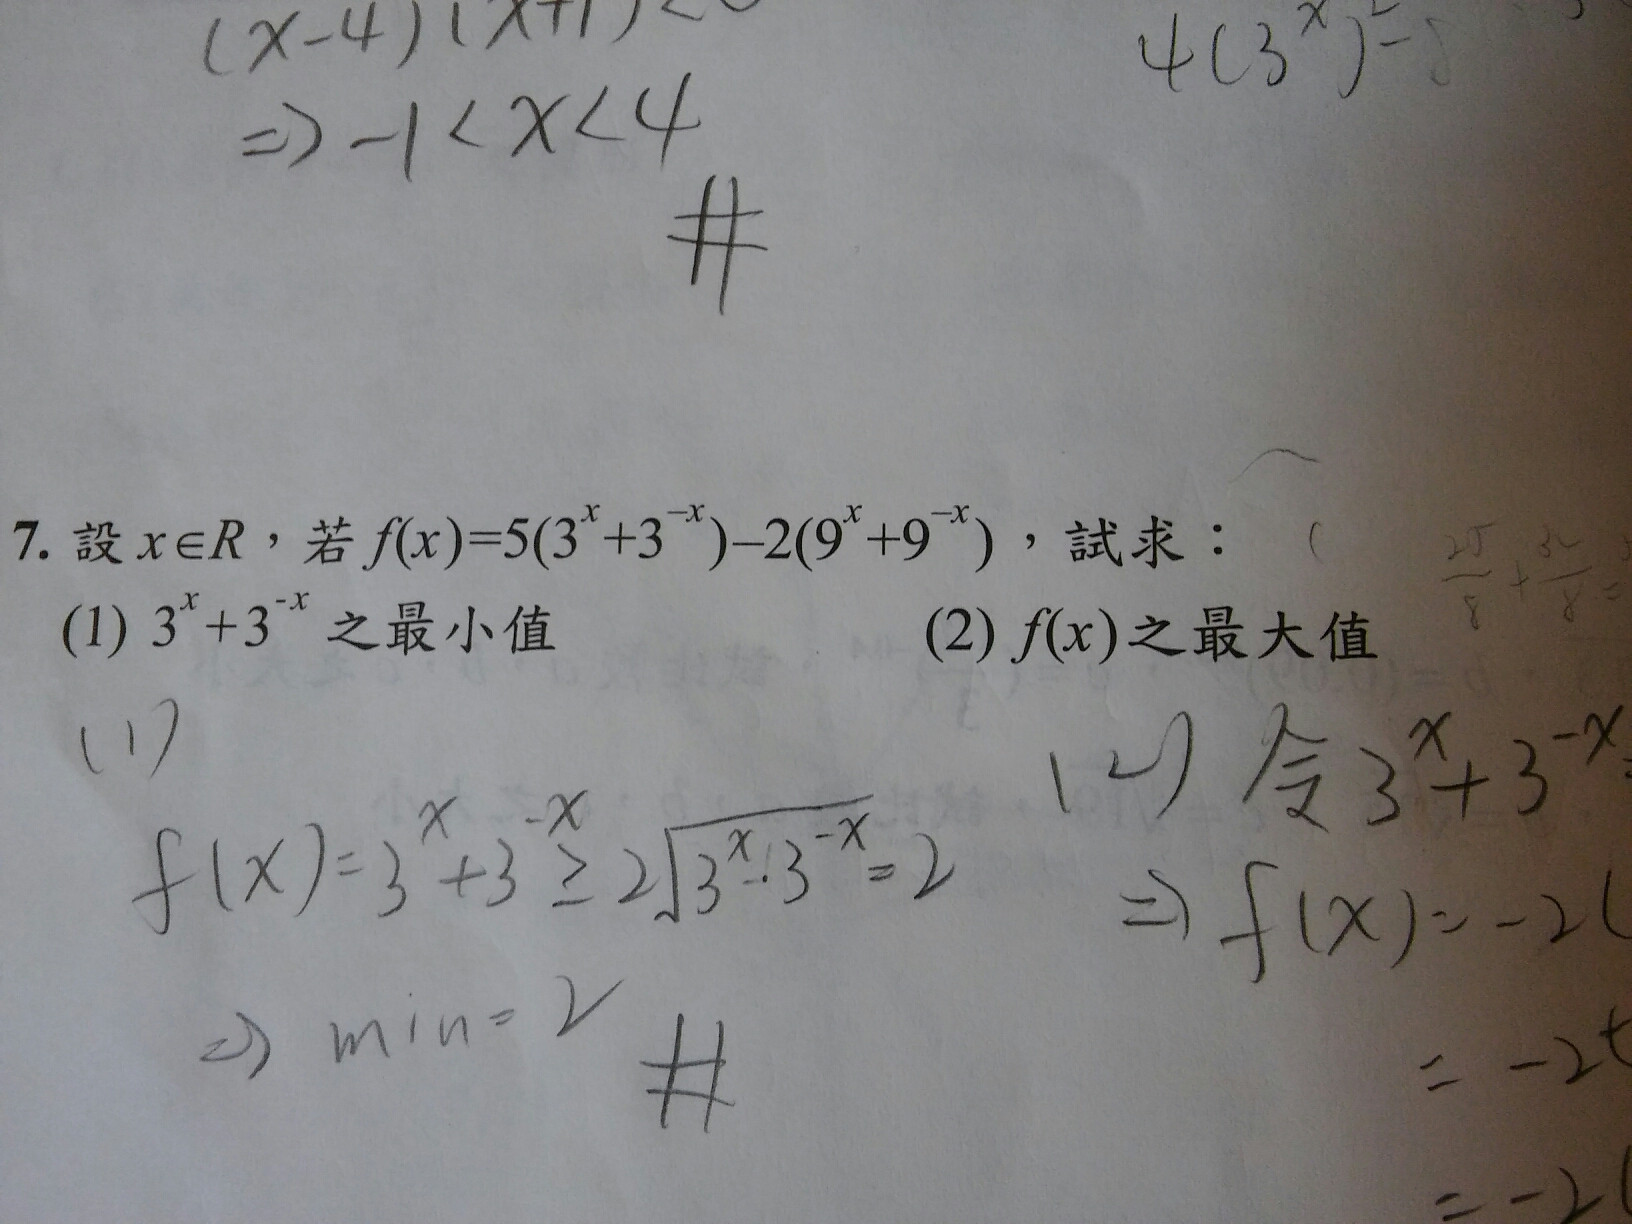 (x-4)(x+1)<0
⇒ -1<x<4
#
4(3^x)^2-
7. 設 x∈R，若 f(x)=5(3^x+3^-x)–2(9^x+9^-x)，試求：
(1) 3^x+3^-x 之最小值
(2) f(x)之最大值
25/8 + 32/8 =
(1)
f(x)=3^x+3^-x ≥ 2√(3^x·3^-x) = 2
⇒ min = 2
#
(2) 令 3^x+3^-x =
⇒ f(x) = -2(
= -2t
= -2(